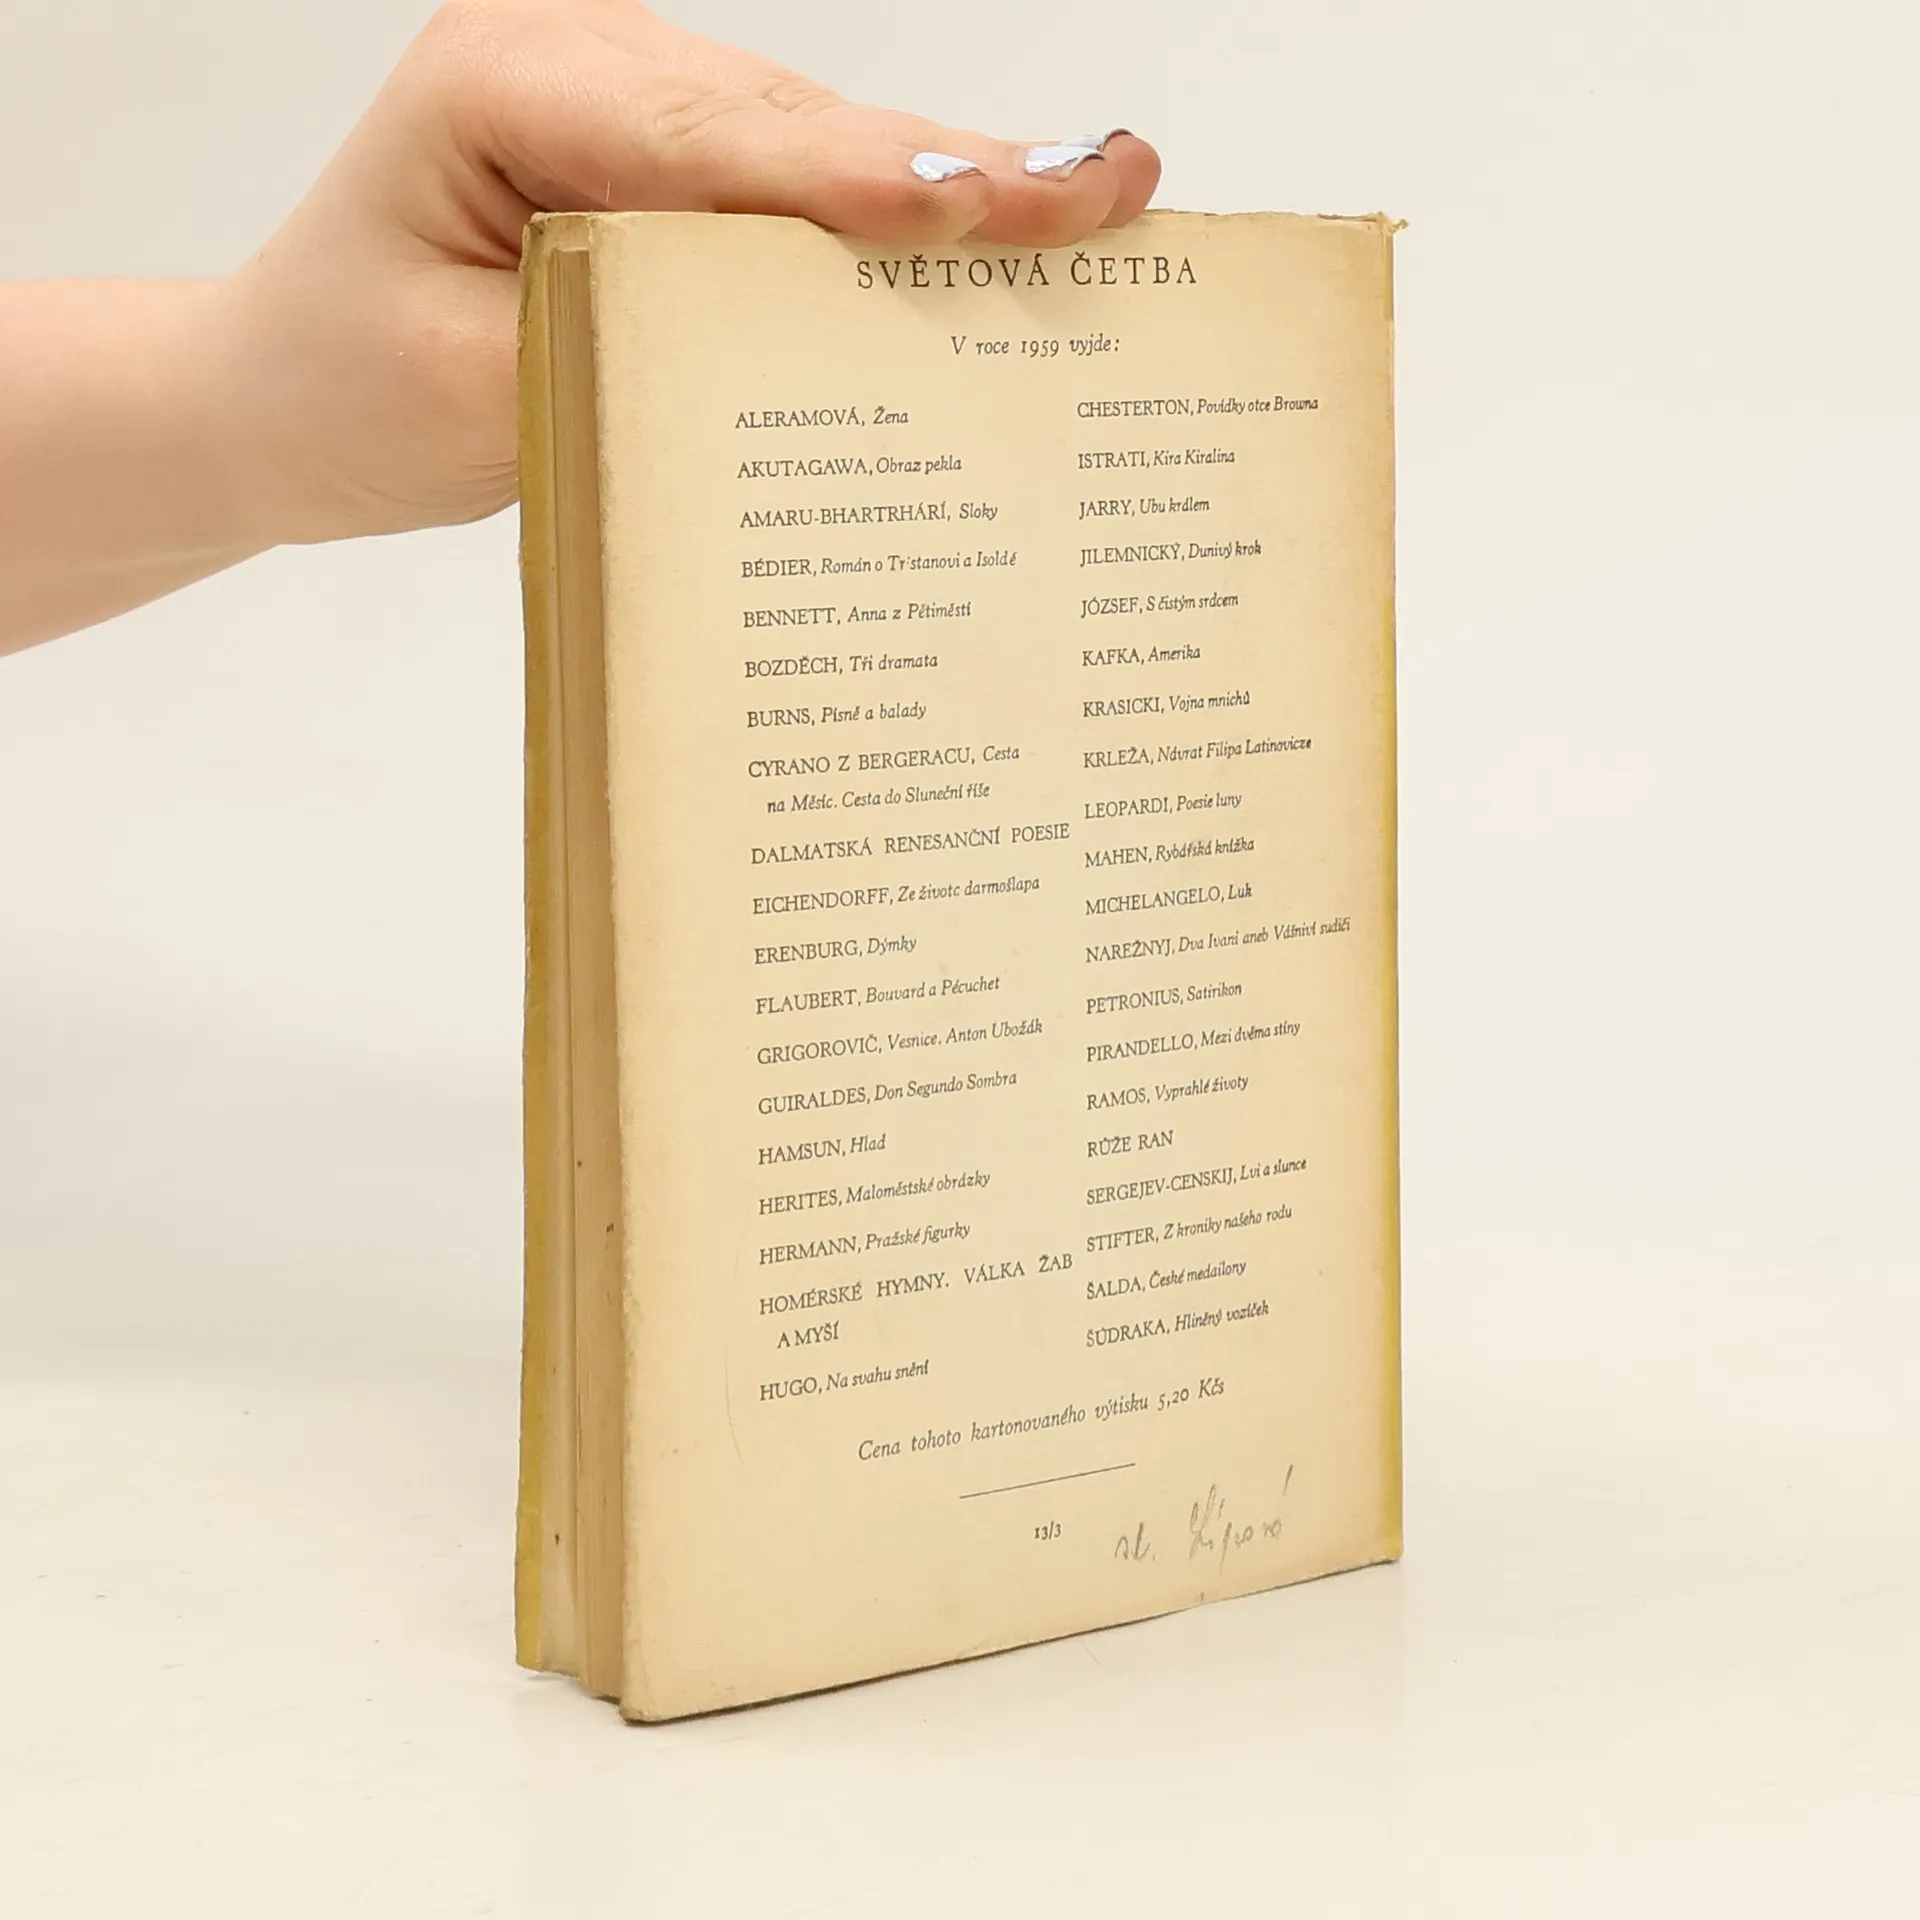 SVĚTOVÁ ČETBA
V roce 1959 vyjde:
ALERAMOVÁ, Žena
AKUTAGAWA, Obraz pekla
AMARU-BHARTRHÁRÍ, Sloky
BÉDIER, Román o Tristanovi a Isoldě
BENNETT, Anna z Pětiměstí
BOZDĚCH, Tři dramata
BURNS, Písně a balady
CYRANO Z BERGERACU, Cesta
na Měsíc. Cesta do Sluneční říše
DALMATSKÁ RENESANČNÍ POESIE
EICHENDORFF, Ze života darmošlapa
ERENBURG, Dýmky
FLAUBERT, Bouvard a Pécuchet
GRIGOROVIČ, Vesnice. Anton Ubožák
GUIRALDES, Don Segundo Sombra
HAMSUN, Hlad
HERITES, Maloměstské obrázky
HERMANN, Pražské figurky
HOMÉRSKÉ HYMNY. VÁLKA ŽAB
A MYŠÍ
HUGO, Na svahu snění
CHESTERTON, Povídky otce Browna
ISTRATI, Kira Kiralina
JARRY, Ubu králem
JILEMNICKÝ, Dunivý krok
JÓZSEF, S čistým srdcem
KAFKA, Amerika
KRASICKI, Vojna mnichů
KRLEŽA, Návrat Filipa Latinovicze
LEOPARDI, Poesie luny
MAHEN, Rybářská knížka
MICHELANGELO, Luk
NAREŽNYJ, Dva Ivani aneb Vášniví sudiči
PETRONIUS, Satirikon
PIRANDELLO, Mezi dvěma stíny
RAMOS, Vyprahlé životy
RŮŽE RAN
SERGEJEV-CENSKIJ, Lvi a slunce
STIFTER, Z kroniky našeho rodu
ŠALDA, České medailony
ŠÚDRAKA, Hliněný vozíček
Cena tohoto kartonovaného výtisku 5,20 Kčs
13/3